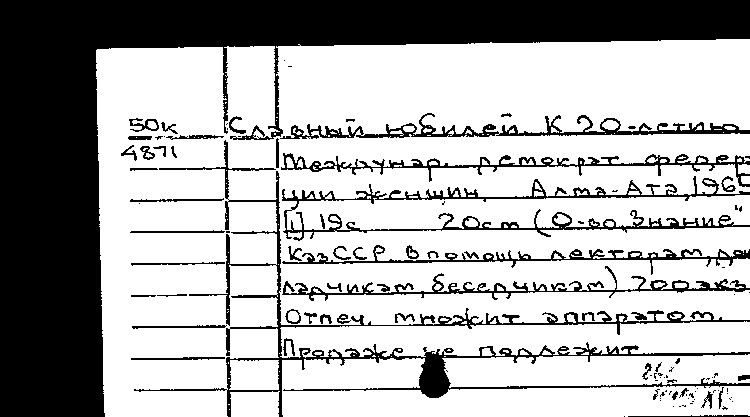 50к Славный юбилей. К 20-летию
4871
Междунар. демократ. федера
ции женщин. Алма-Ата, 1965
[1], 19с. 20см (О-во „Знание"
КазССР. В помощь лекторам, док
ладчикам, беседчикам) 700 экз
Отпеч. множит. аппаратом.
Продаже не подлежит